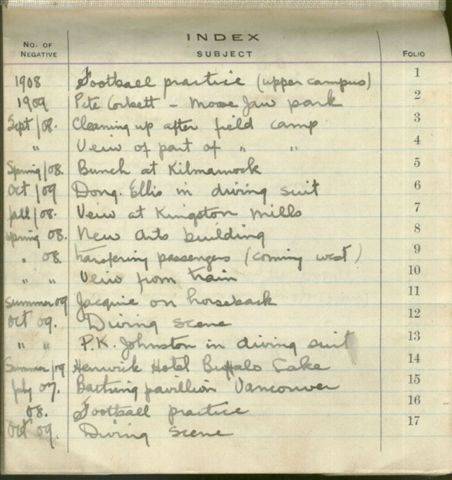 INDEX
NO. OF NEGATIVE SUBJECT FOLIO
1908 Football practice (upper campus) 1
1909 Pete Corkett - Moose Jaw park 2
Sept/08. Cleaning up after field camp 3
" Veiw of part of " " 4
Spring/08. Bunch at Kilmarnock 5
Oct/09 Doug. Ellis in diving suit 6
fall/08. Veiw at Kingston Mills 7
Spring 08. New Arts building 8
" 08. transfering passengers (coming west) 9
" " Veiw from train 10
Summer 09 Jacquie on horseback 11
Oct 09. Diving scene 12
" " P.K. Johnston in diving suit 13
Summer/09 Hotel Buffalo Lake 14
July 07. Bathing pavillion Vancouver 15
08. Football practice 16
Oct 09. Diving scene 17